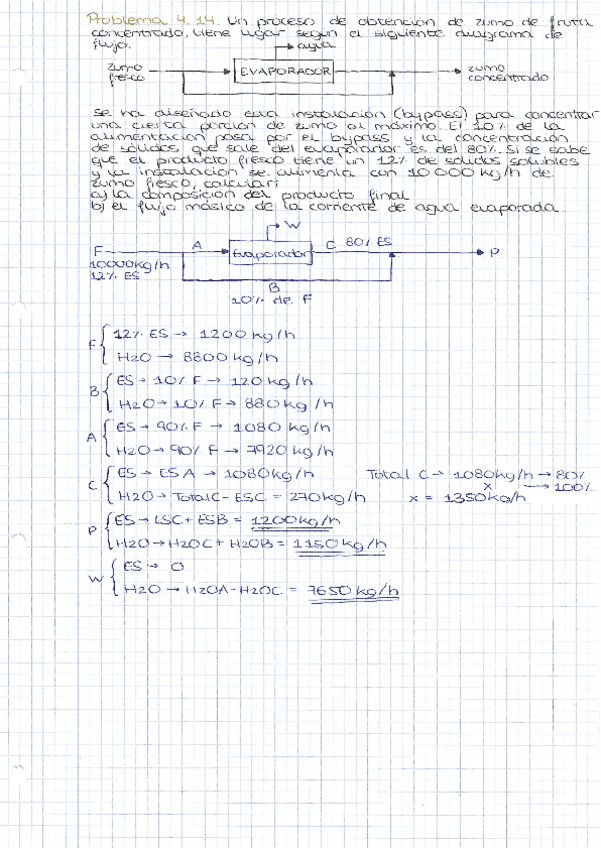 Problema 4.14. Un proceso de obtención de zumo de fruta
concentrado, tiene lugar según el siguiente diagrama de
flujo.
agua
zumo
fresco
EVAPORADOR
zumo
concentrado
Se ha diseñado esta instalación (bypass) para concentrar
una cierta porción de zumo al máximo. El 10% de la
alimentación pasa por el bypass y la concentración
de sólidos que sale del evaporador es del 80%. Si se sabe
que el producto fresco tiene un 12% de sólidos solubles
y la instalación se alimenta con 10000 kg/h de
zumo fresco, calcular:
a) la composición del producto final
b) el flujo másico de la corriente de agua evaporada
W
F
A
Evaporador
C 80% ES
P
10000kg/h
12% ES
B
10% de F
F { 12% ES → 1200 kg/h
H2O → 8800 kg/h
B { ES → 10% F → 120 kg/h
H2O → 10% F → 880 kg/h
A { ES → 90% F → 1080 kg/h
H2O → 90% F → 7920 kg/h
C { ES → ES A → 1080kg/h Total C → 1080kg/h → 80%
x → 100%
H2O → Total C - ESC = 270 kg/h x = 1350kg/h
P { ES → ESC + ESB = 1200 kg/h
H2O → H2OC + H2OB = 1150 kg/h
W { ES → 0
H2O → H2OA - H2OC = 7650 kg/h